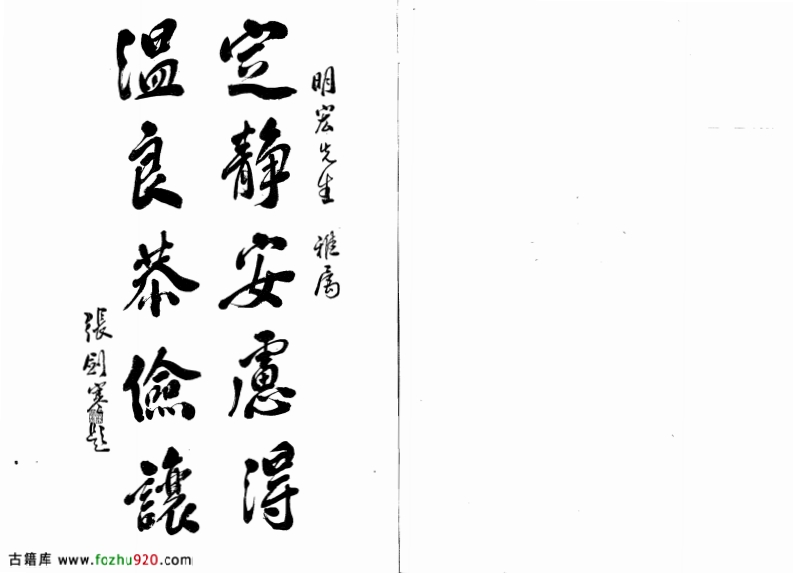 明宏先生 雅属
定静安慮得
温良恭儉讓
張劍寒題
古籍库 www.fozhu920.com